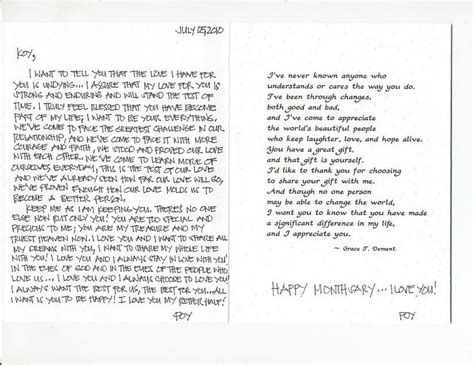 JULY 05, 2010
KOY,
I WANT TO TELL YOU THAT THE LOVE I HAVE FOR
YOU IS UNDYING... I ASSURE THAT MY LOVE FOR YOU IS
STRONG AND ENDURING AND WILL STAND THE TEST OF
TIME. I TRULY FEEL BLESSED THAT YOU HAVE BECOME
PART OF MY LIFE; I WANT TO BE YOUR EVERYTHING.
WE'VE COME TO FACE THE GREATEST CHALLENGE IN OUR
RELATIONSHIP, AND WE'VE COME TO FACE IT WITH MORE
COURAGE AND FAITH, WE STOOD AND PROVED OUR LOVE
WITH EACH OTHER. WE'VE COME TO LEARN MORE OF
OURSELVES EVERYDAY, THIS IS THE TEST OF OUR LOVE
AND WE'VE ALREADY SEEN HOW FAR OUR LOVE WILL GO,
WE'VE PROVEN ENOUGH HOW OUR LOVE MOLDS US TO
BECOME A BETTER PERSON.
KEEP ME AS I AM KEEPING YOU. THERE'S NO
ELSE NON BUT ONLY YOU! YOU ARE TOO SPECIAL AND
PRECIOUS TO ME; YOU ARE MY TREASURE AND MY
TRUEST HEAVEN NON. I LOVE YOU AND I WANT TO SHARE ALL
MY DREAMS WITH YOU, I WANT TO SHARE MY WHOLE LIFE
WITH YOU! I LOVE YOU AND I ALWAYS STAY IN LOVE WITH YOU!
IN THE EYES OF GOD AND IN THE EYES OF THE PEOPLE WHO
LOVE US... I LOVE YOU AND I ALWAYS CHOOSE TO LOVE YOU!
I ALWAYS WANT THE BEST FOR US, THE BEST FOR YOU... ALL
I WANT IS YOU TO BE HAPPY! I LOVE YOU MY BETTER HALF!
POY
I've never known anyone who
understands or cares the way you do.
I've been through changes,
both good and bad,
and I've come to appreciate
the world's beautiful people
who keep laughter, love, and hope alive.
You have a great gift,
and that gift is yourself.
I'd like to thank you for choosing
to share your gift with me.
And though no one person
may be able to change the world,
I want you to know that you have made
a significant difference in my life,
and I appreciate you.
~ Grace T. Dement
HAPPY MONTHSARY... I LOVE YOU!
POY